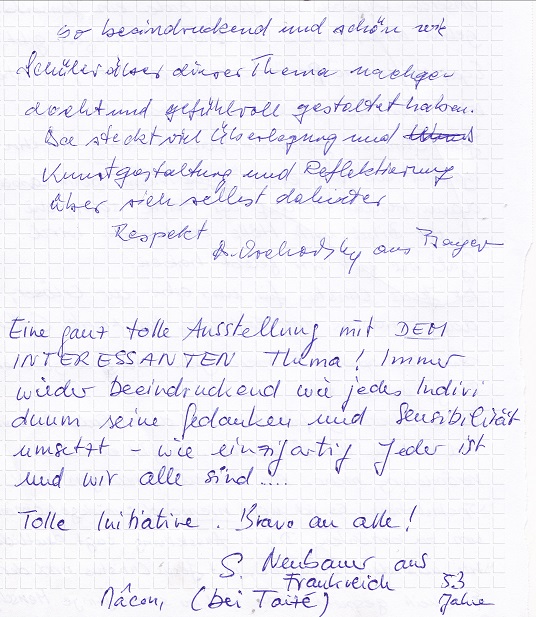 so beeindruckend und schön wie
Schüler über dieser Thema nachge-
dacht und gefühlvoll gestaltet haben.
Da steckt viel Überlegung und
Kunstgestaltung und Reflektierung
über sich selbst dahinter
Respekt
aus Bayern
Eine ganz tolle Ausstellung mit DEM
INTERESSANTEN Thema! Immer
wieder beeindruckend wie jedes Indivi
duum seine Gedanken und Sensibilität
umsetzt - wie einzigartig Jeder ist
und wir alle sind....
Tolle Initiative. Bravo an alle!
S. Neubauer aus
Frankreich 53
Mâcon, (bei Taizé) Jahre